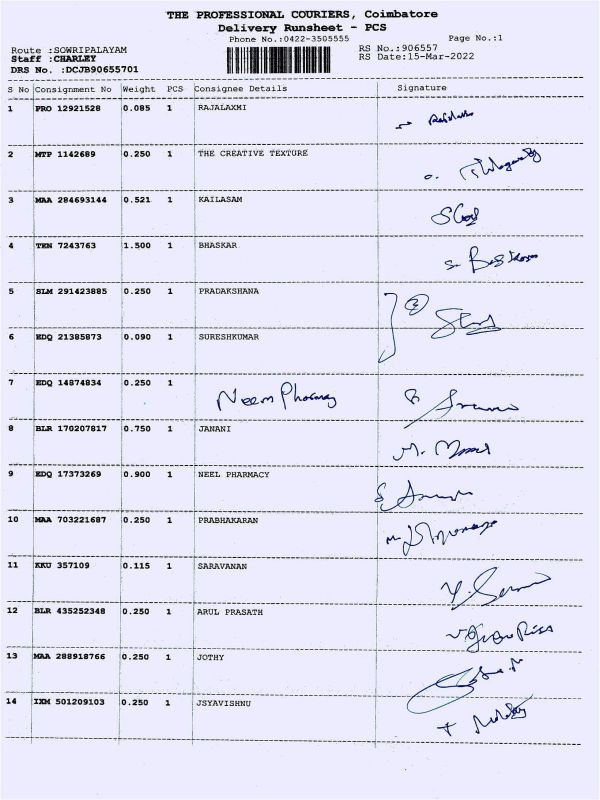 THE PROFESSIONAL COURIERS, Coimbatore
Delivery Runsheet - PCS
Phone No.:0422-3505555
Page No.:1
Route :SOWRIPALAYAM
RS No.:906557
Staff :CHARLEY
RS Date:15-Mar-2022
DRS No. :DCJB90655701
S No Consignment No Weight PCS Consignee Details Signature
1 PRO 12921528 0.085 1 RAJALAXMI
2 MTP 1142689 0.250 1 THE CREATIVE TEXTURE
3 MAA 284693144 0.521 1 KAILASAM
4 TEN 7243763 1.500 1 BHASKAR
5 SLM 291423885 0.250 1 PRADAKSHANA
6 EDQ 21385873 0.090 1 SURESHKUMAR
7 EDQ 14874834 0.250 1 Neem Pharmacy
8 BLR 170207817 0.750 1 JANANI
9 EDQ 17373269 0.900 1 NEEL PHARMACY
10 MAA 703221687 0.250 1 PRABHAKARAN
11 KKU 357109 0.115 1 SARAVANAN
12 BLR 435252348 0.250 1 ARUL PRASATH
13 MAA 288918766 0.250 1 JOTHY
14 IXM 501209103 0.250 1 JSYAVISHNU